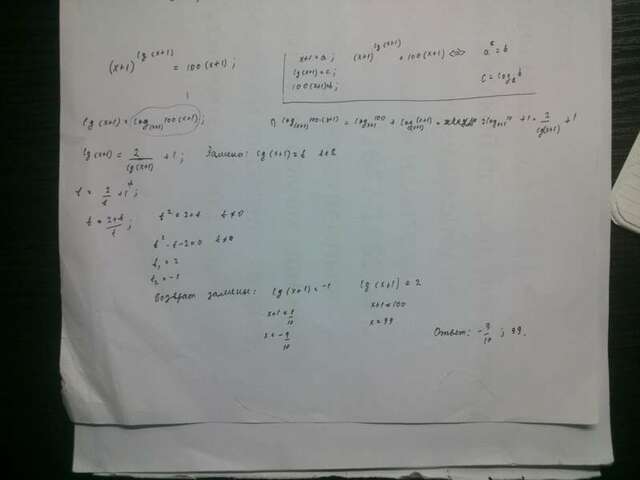 (x+1)^lg(x+1) = 100(x+1);
x+1=a; (x+1)^lg(x+1) = 100(x+1) <=> a^c = b
lg(x+1)=c;
100(x+1)=b; c = log_a b
lg(x+1) = log_(x+1) 100(x+1);
log_(x+1) 100(x+1) = log_(x+1) 100 + log_(x+1) (x+1) = 2log_(x+1) 10 + 1 = 2/lg(x+1) + 1
lg(x+1) = 2/lg(x+1) + 1; Замена: lg(x+1)=t
t = 2/t + 1;
t = 2+t/t; t² = 2+t t≠0
t² - t - 2=0 t≠0
t₁ = 2
t₂ = -1
Возврат замены: lg(x+1) = -1 lg(x+1) = 2
x+1 = 1/10 x+1 = 100
x = -9/10 x = 99
Ответ: -9/10 ; 99.